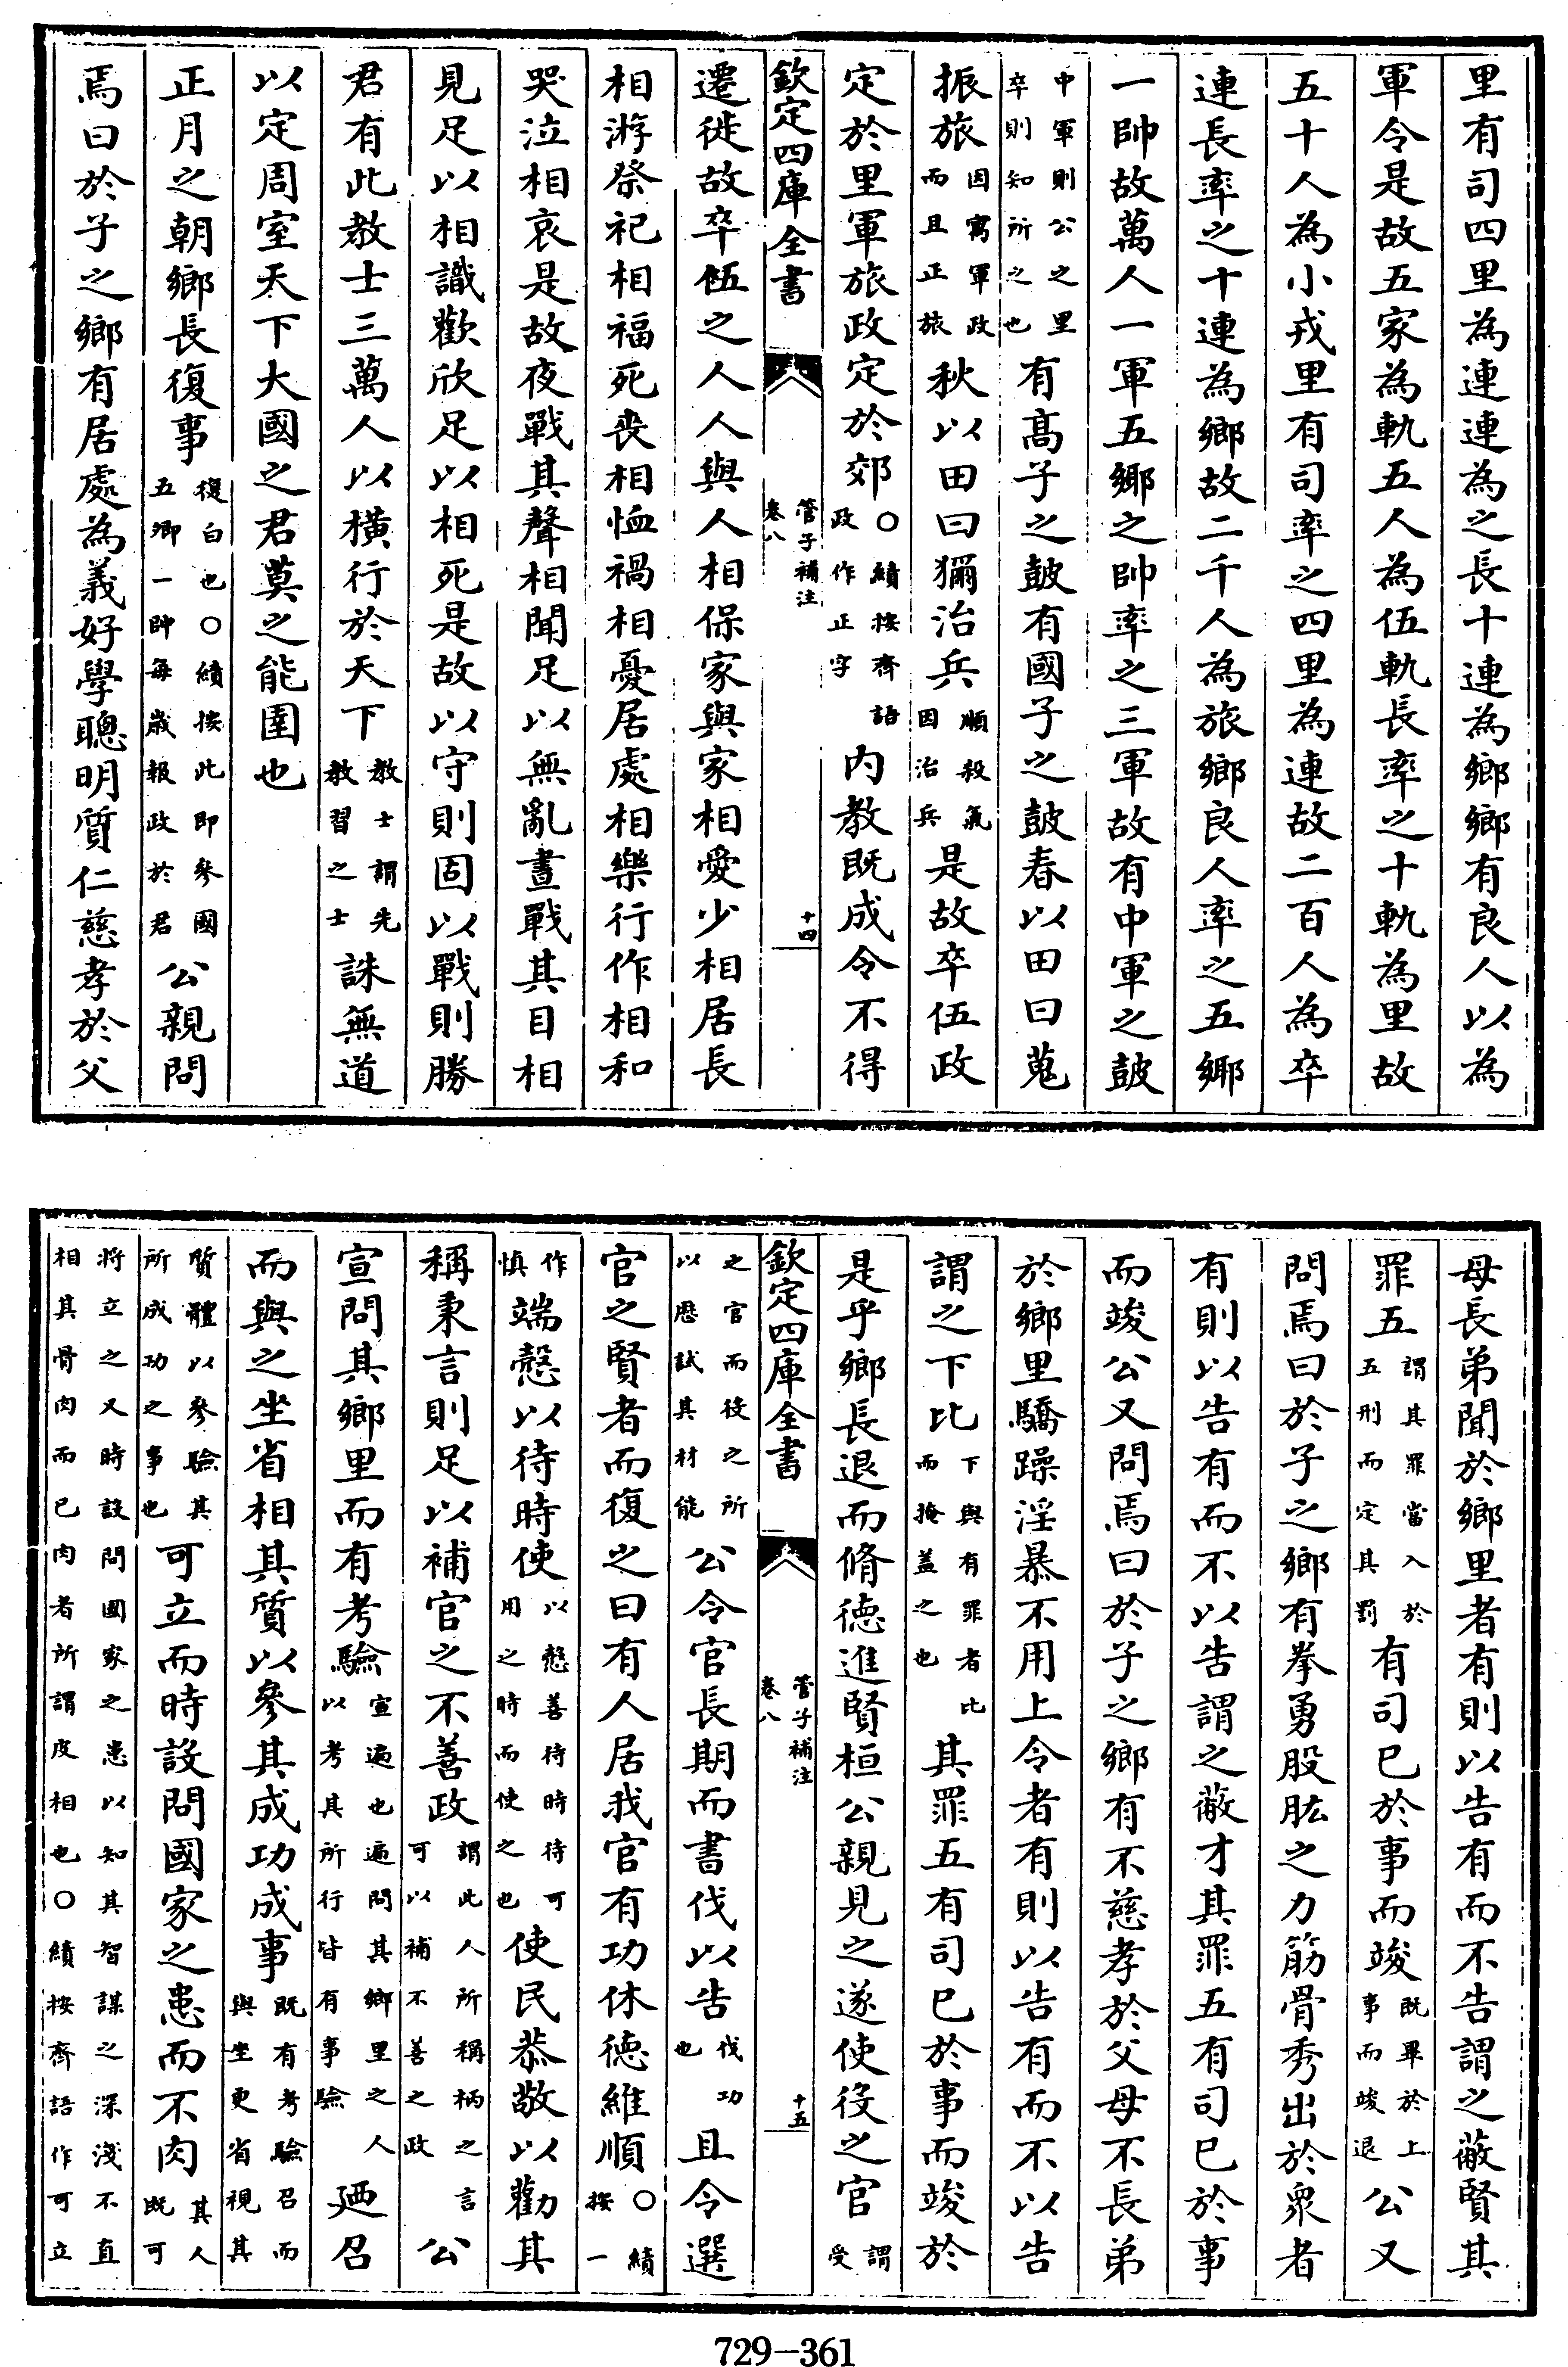 里有司四里為連連為之長十連為鄉鄉有良人以為
軍令是故五家為軌五人為伍軌長率之十軌為里故
五十人為小戎里有司率之四里為連故二百人為卒
連長率之十連為鄉故二千人為旅鄉良人率之五鄉
一帥故萬人一軍五鄉之帥率之三軍故有中軍之鼓
中軍則公之里卒則知所之也有髙子之鼓有國子之鼓春以田曰蒐
振旅因寓軍政而且正旅秋以田曰獮治兵順殺氣因治兵是故卒伍政
定於里軍旅政定於郊○績按齊語政作正字内教既成令不得
欽定四庫全書 管子補注 卷八 十四
遷徙故卒伍之人人與人相保家與家相愛少相居長
相游祭祀相福死喪相恤禍相憂居處相樂行作相和
哭泣相哀是故夜戰其聲相聞足以無亂晝戰其目相
見足以相識歡欣足以相死是故以守則固以戰則勝
君有此教士三萬人以橫行於天下教士謂先教習之士誅無道
以定周室天下大國之君莫之能圉也
正月之朝鄉長復事復白也○績按此即參國五鄉一帥每歲報政於君公親問
焉曰於子之鄉有居處為義好學聰明質仁慈孝於父
母長弟聞於鄉里者有則以告有而不告謂之蔽賢其
罪五謂其罪當入於五刑而定其罰有司已於事而竣既畢於上事而竣退公又
問焉曰於子之鄉有拳勇股肱之力筋骨秀出於衆者
有則以告有而不以告謂之蔽才其罪五有司已於事
而竣公又問焉曰於子之鄉有不慈孝於父母不長弟
於鄉里驕躁淫暴不用上令者有則以告有而不以告
謂之下比下與有罪者比而掩蓋之也其罪五有司已於事而竣於
是乎鄉長退而脩德進賢桓公親見之遂使役之官謂受
欽定四庫全書 管子補注 卷八 十五
之官而役之所以歴試其材能公令官長期而書伐以告伐功也且令選
官之賢者而復之曰有人居我官有功休德維順○績按一
作慎端慤以待時使以慤善待時待可用之時而使之也使民恭敬以勸其
稱秉言則足以補官之不善政謂此人所稱柄之言可以補不善之政公
宣問其鄉里而有考驗宣遍也遍問其鄉里之人以考其所行皆有事驗廼召
而與之坐省相其質以參其成功成事既有考驗召而與坐更省視其
質體以參驗其所成功之事也可立而時設問國家之患而不肉其人既可
將立之又時設問國家之患以知其智謀之深淺不直相其骨肉而已肉者所謂皮相也○績按齊語作可立
729-361